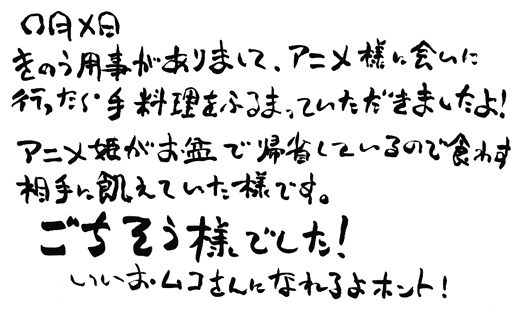 〇月×日
きのう用事がありまして、アニメ様に会いに
行ったら手料理をふるまっていただきましたよ!
アニメ姫がお盆で帰省しているので食わす
相手に飢えていた様です。
ごちそう様でした!
いいおムコさんになれるよホント!